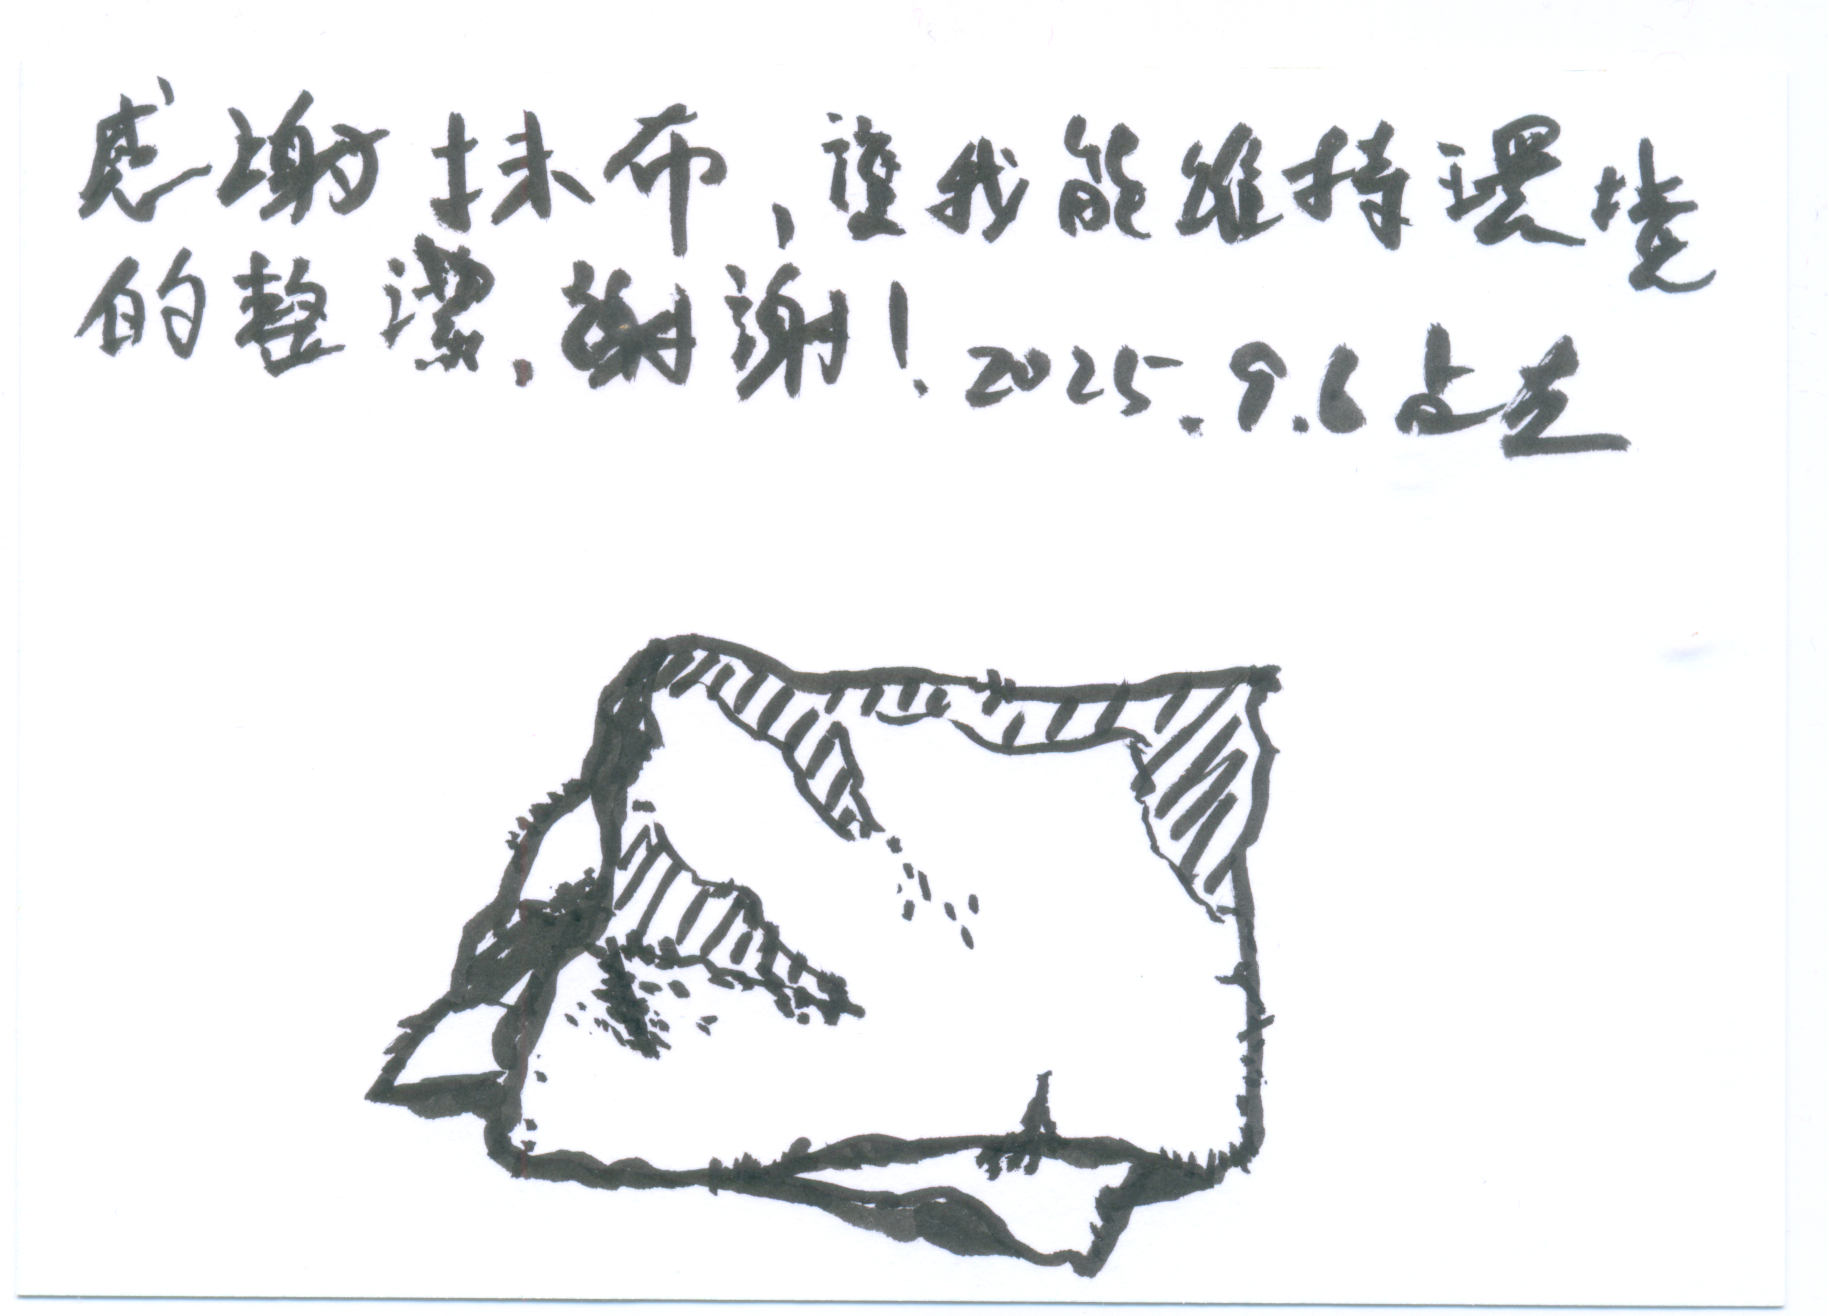 感謝抹布,讓我能維持環境
的整潔.謝謝!2025.9.6